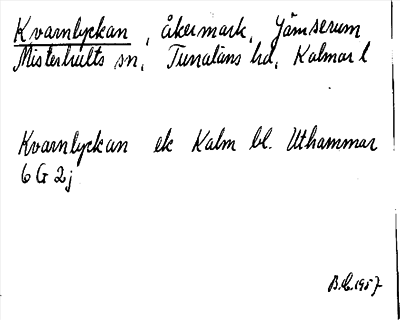 Kvarnlyckan, åkermark, Jämserum
Misterhults sn, Tunaläns hd, Kalmar l
Kvarnlyckan ek Kalm bl. Uthammar
6 G 2j
B.C. 1957